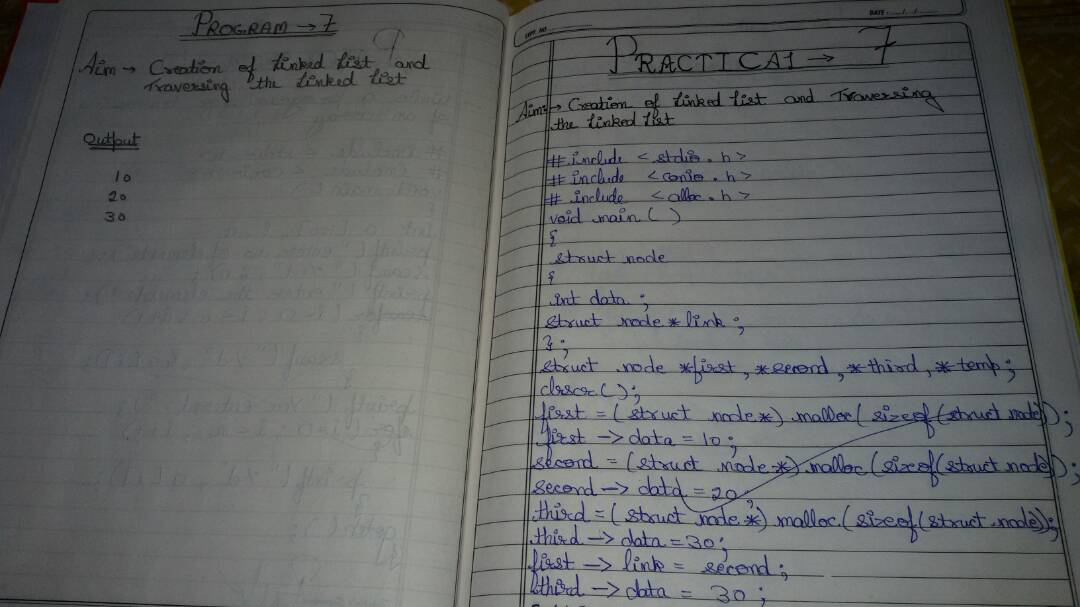 PROGRAM → 7
Aim → Creation of linked list and
Traversing the linked list
Output
10
20
30
EXPT. NO.
DATE: / /
PRACTICAL → 7
Aim:→ Creation of linked list and Traversing
the linked list
# include < stdio . h >
# include < conio . h >
# include < alloc . h >
void main ( )
{
struct node
{
int data ;
struct node * link ;
} ;
struct node *first , *second , *third , *temp ;
clrscr ( ) ;
first = ( struct node *) malloc ( sizeof (struct node)) ;
first -> data = 10 ;
second = ( struct node *) malloc ( sizeof (struct node)) ;
second -> data = 20 ;
third = ( struct node *) malloc ( sizeof (struct node)) ;
third -> data = 30 ;
first -> link = second ;
third -> data = 30 ;